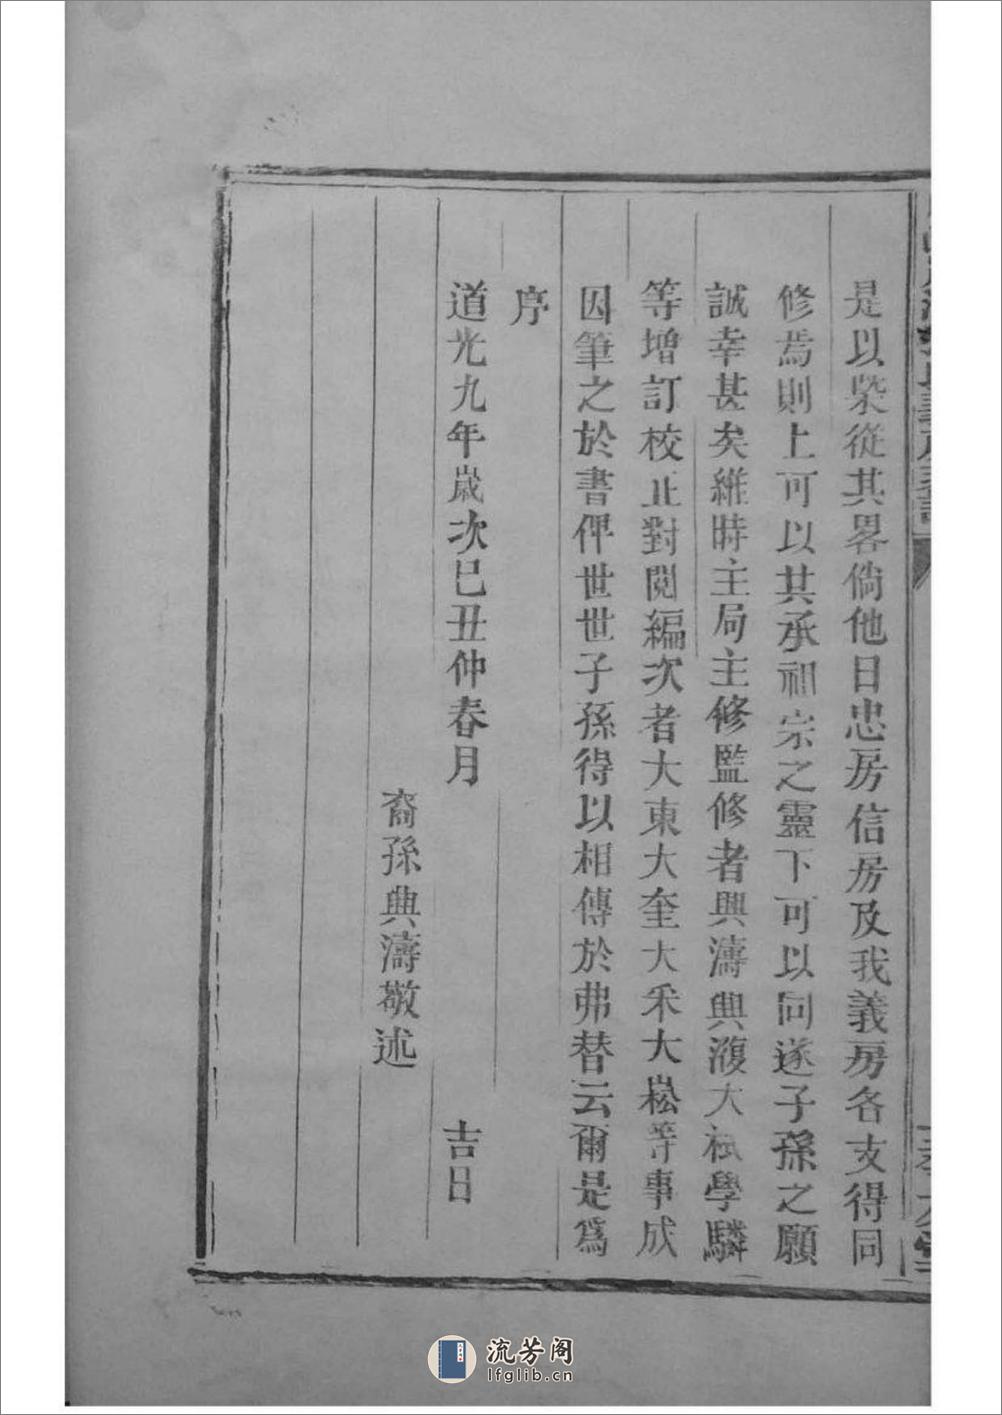 是以梷從其畧倘他日忠房信房及我義房各支得同
修焉則上可以其承祖宗之靈下可以同遂子孫之願
誠幸甚矣維時主局主修監修者興濤興澓大祘學驎
等增訂校正對閲編次者大東大奎大釆大崧等事成
因筆之於書俾世世子孫得以相傳於弗替云爾是爲
序
道光九年歲次巳丑仲春月 吉日
裔孫典濤敬述
流芳阁
lfglib.cn